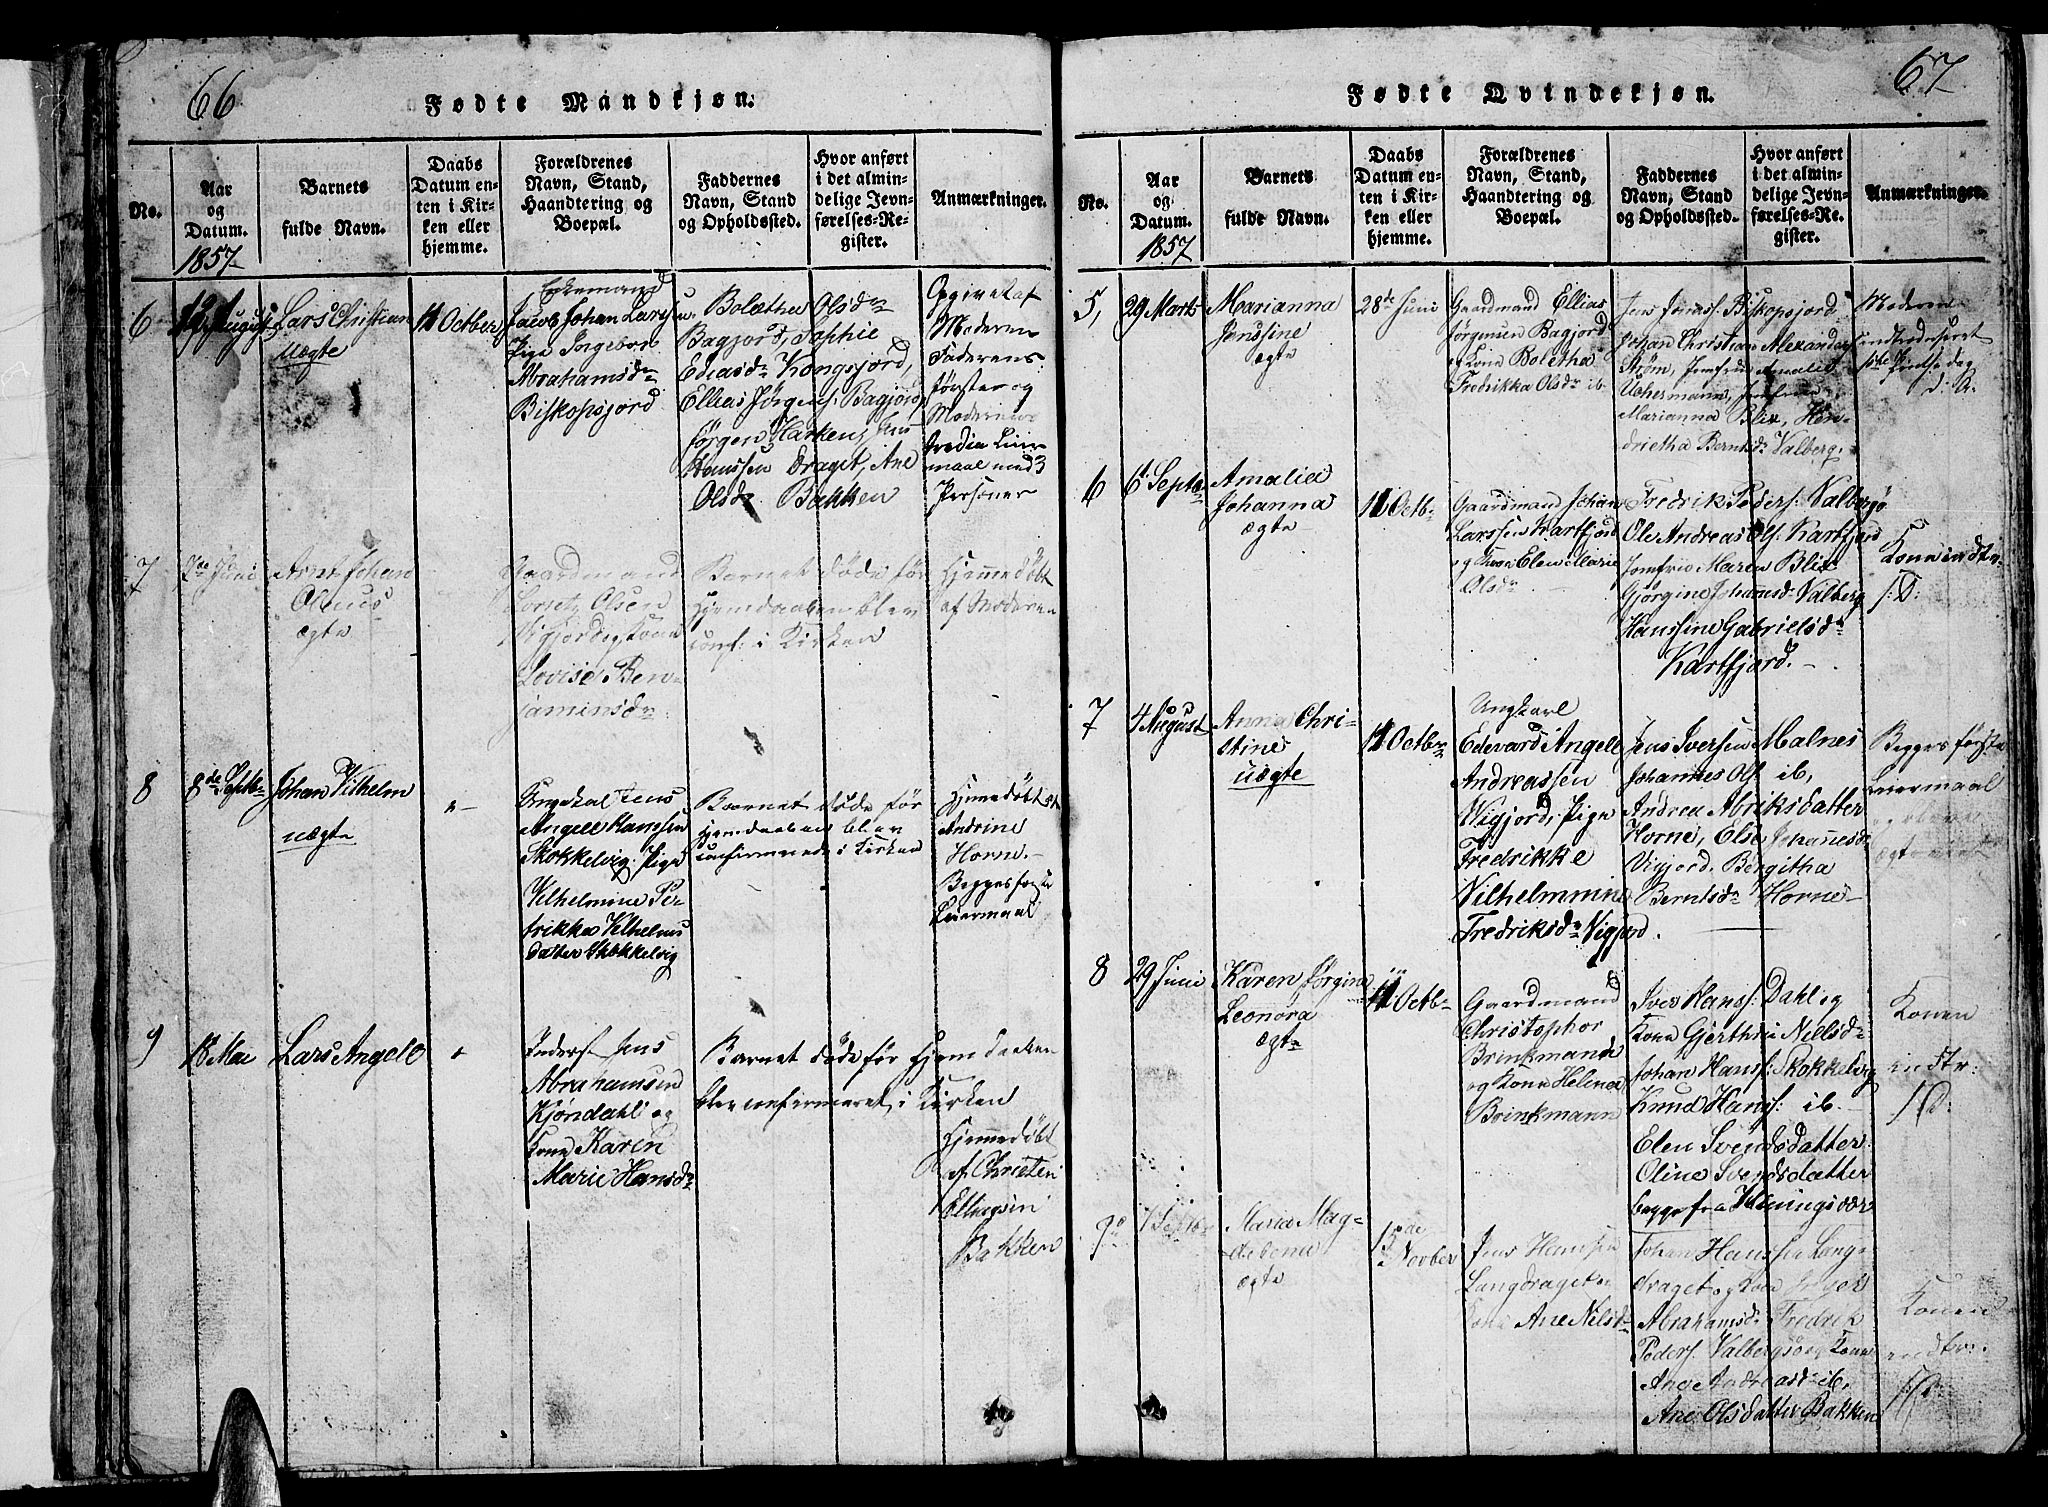 66
Fødte Mandkjøn.
No.
Aar
og
Datum.
1857
Barnets
fulde Navn.
Daabs
Datum en-
ten i Kir-
ken eller
hjemme.
Forældrenes
Navn, Stand,
Haandtering og
Boepæl.
Faddernes
Navn, Stand
og Opholdssted.
Hvor anført
i det almin-
delige Jevn-
førelses-Re-
gister.
Anmærkninger.
6
August
Lars Christian
uægte
11 October
Enkemand
Jacob Johan Larssen
Pige Ingebor
Abrahamsdr
Biskopsjord
Bolætha Olsdr
Bagjord, Sophie
Ediasdr Kongsjord,
Ellias Jørgens. Bagjord
Jørgen Harkens, Jens
Hanssen Draget, Ane
Olsdr Bakken
Opgivet af
Moderen
Faderens
første og
Moderens
tredie Leier-
maal med 3
Personer
7
Juni
Arnt Johan
Olaus
ægte
Gaardmand
Lorsetz Olsen
Vigjord og Kone
Lovise Ben-
jaminsdr
Barnet døde før
Hjemdaaben blev
conf: i Kirken
Hjemmedøbt
af Moderen
8
8de Septbr
Johan Vilhelm
uægte
"
Ungekal Jens
Angell Hanssen
Skokkelvig. Pige
Vilhelmine Pe-
trikke Vilhelms
datter Skokkelvig
Barnet døde før
Hjemdaaben blev
confirmerede i Kirken
Hjemedøbt af
Andrine
Horne.
Begges første
Leiermaal
9
18 Mai
Lars Angell
"
Inders. Jens
Abrahamsen
Kjøndahl og
Kone Karen
Marie Hansdr
Barnet døde før Hjemdaaben
blev confirmeret i Kirken
Hjemmedøbt
af Christen
Elliassen
Bakken
67
Fødte Qvindekjøn.
No.
Aar
og
Datum.
1857
Barnets
fulde Navn.
Daabs
Datum en-
ten i Kir-
ken eller
hjemme.
Forældrenes
Navn, Stand,
Haandtering og
Boepæl.
Faddernes
Navn, Stand
og Opholdssted.
Hvor anført
i det almin-
delige Jevn-
førelses-Re-
gister.
Anmærkninger.
5,
29 Marts
Marianna
Jenssine
ægte
28de Juni
Gaardmand Ellias
Jørgensen Bagjord
og Kone Boletha
Fredrikka Olsdr ib.
Jens Jonass. Biskopsjord,
Johan Christian Alexander
Strøm, Jomfru Amalie
Uchermann, Jomfru
Marianna Blix, Hen-
drietha Berntsdr Valberg.
Moderen
6
6 Septbr
Amalia
Johanna
ægte
11 Octbr
Gaardmand Johan
Larssen Kartfjord
og Kone Elen Marie
Olsdr
Fredrik Peders: Valbergø
Ole Andreas Ols. Kartfjord
Jomfrue Maren Blix
Gjørgine Johannsdr Valberg
Hanssine Gabrielsdr
Kartfjord.
Kone indtr.
/:D:
7
4 August
Anna Chri-
stine
uægte
11 Octbr
Ungkarl
Edevard Angell
Andreassen
Vigjord, Pige
Fredrikke
Vilhelmmine
Fredriksdr Vigjord.
Jens Iversen Malnes
Johannes Ols. ib,
Andrea Abriksdatter
Horne, Else Johannesdr
Vigjord. Bergitha
Berntsdr Horne
Begges første
Leiermaal
8
29 Juni
Karen Jørgine
Leonora
ægte
11 Octbr
Gaardmand
Christophor
Brinkmann
og Kone Helena
Brinkmann
Iver Hanss: Dahl og
Kone Gjerthru Nielsdr
Johan Hans: Skokkelvig
Knud Hans: ib.
Elen Svendsdatter
Oline Svendsdatter
begge fra Henningsvær
Konen
indtr:
/:D:
9
7 Septbr
Maria Mag-
delena
ægte
15de
Novber
Jens Hansen
Langdraget og
Kone Ane Nilsdr
Johan Hanssen Lang-
draget og Kone
Abrahamsdr Fredrik
Peders. Valbergsøe, Kone
Ane Andreasdr ib,
Ane Olsdatter Bakken
Konen
indtr.
/:D: